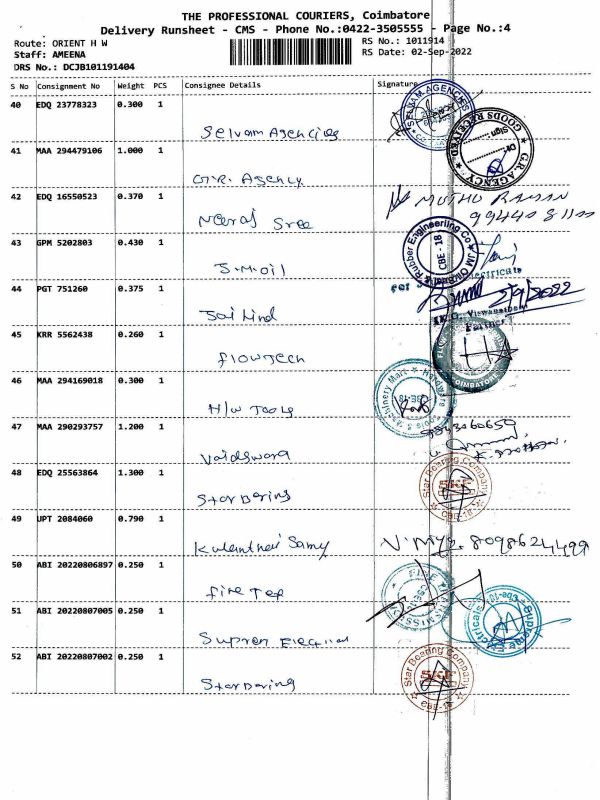 THE PROFESSIONAL COURIERS, Coimbatore
Delivery Runsheet - CMS - Phone No.:0422-3505555 - Page No.:4
Route: ORIENT H W
RS No.: 1011914
Staff: AMEENA
RS Date: 02-Sep-2022
DRS No.: DCJB101191404
S No Consignment No Weight PCS Consignee Details Signature
40 EDQ 23778323 0.300 1
Selvam Agencies
SELVAM AGENCIES
41 MAA 294479106 1.000 1
G.R. Agency
G.R. AGENCY GOODS RECEIVED
Sign
42 EDQ 16550523 0.370 1
Neeraj Sree
MUTHU RAMAN
43 GPM 5202803 0.430 1
J.M.oil
Rubber Engineering Co JM Oil
CBE - 18
44 PGT 751260 0.375 1
Jai Hind
For
Electricals
2/9/2022
Viswanathan
Partner
45 KRR 5562438 0.260 1
flowtech
COIMBATORE
46 MAA 294169018 0.300 1
H/w Tools
Tools & Machinery Mart Hardware
CBE-18
47 MAA 290293757 1.200 1
9843060650
48 EDQ 25563864 1.300 1
Star Baring
Star Bearing Company
SKF
CBE-18
49 UPT 2084060 0.790 1
Kulanthai Samy
8098624499
50 ABI 20220806897 0.250 1
fire Tep
51 ABI 20220807005 0.250 1
Supren Electrical
Supreme Electricals
52 ABI 20220807002 0.250 1
Star Baring
Star Bearing Company
SKF
CBE-18